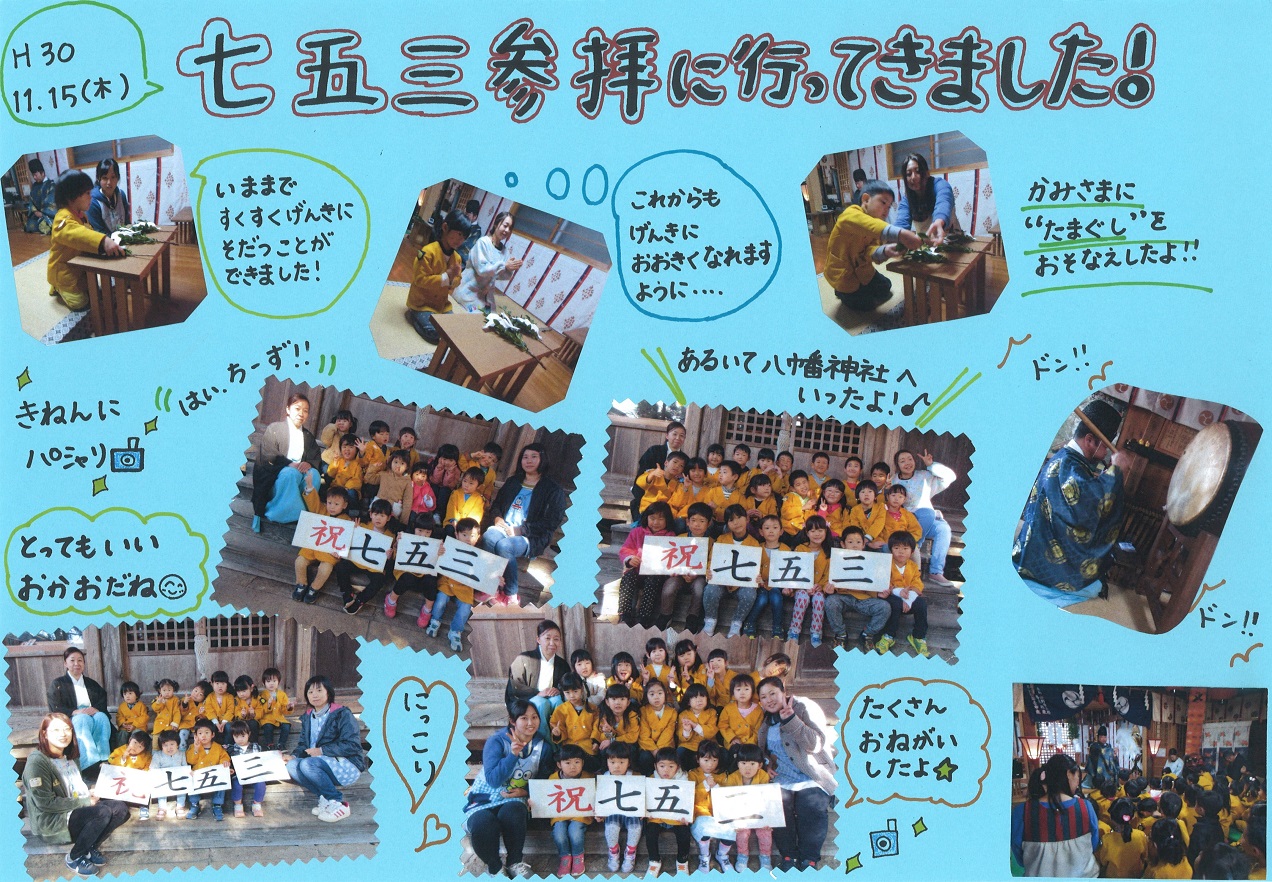 H30
11.15(木)
七五三参拝に行ってきました!
いままで
すくすくげんきに
そだつことが
できました!
これからも
げんきに
おおきくなれます
ように・・・・
かみさまに
“たまぐし”を
おそなえしたよ!!
きねんに
パシャリ
はい、ちーず!!
あるいて八幡神社へ
いったよ!♪
ドン!!
とってもいい
おかおだね
祝七五三
祝七五三
ドン!!
祝七五三
にっこり
祝七五三
たくさん
おねがい
したよ☆